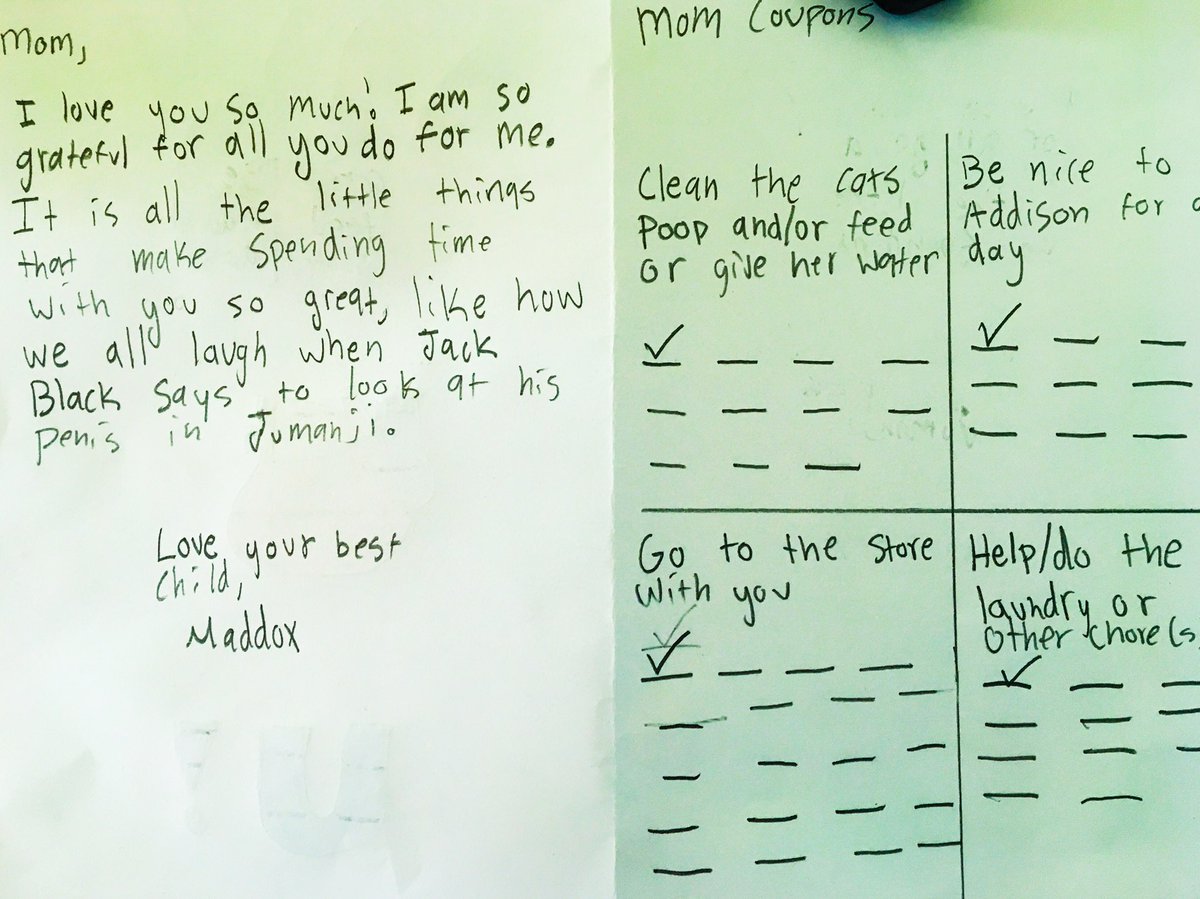 Mom,
I love you so much! I am so
grateful for all you do for me.
It is all the little things
that make spending time
with you so great, like how
we all laugh when Jack
Black says to look at his
penis in Jumanji.
Love, your best
child,
Maddox
Mom Coupons
Clean the cats
poop and/or feed
or give her water
Be nice to
Addison for a
day
Go to the store
with you
Help/do the
laundry or
other chore(s)